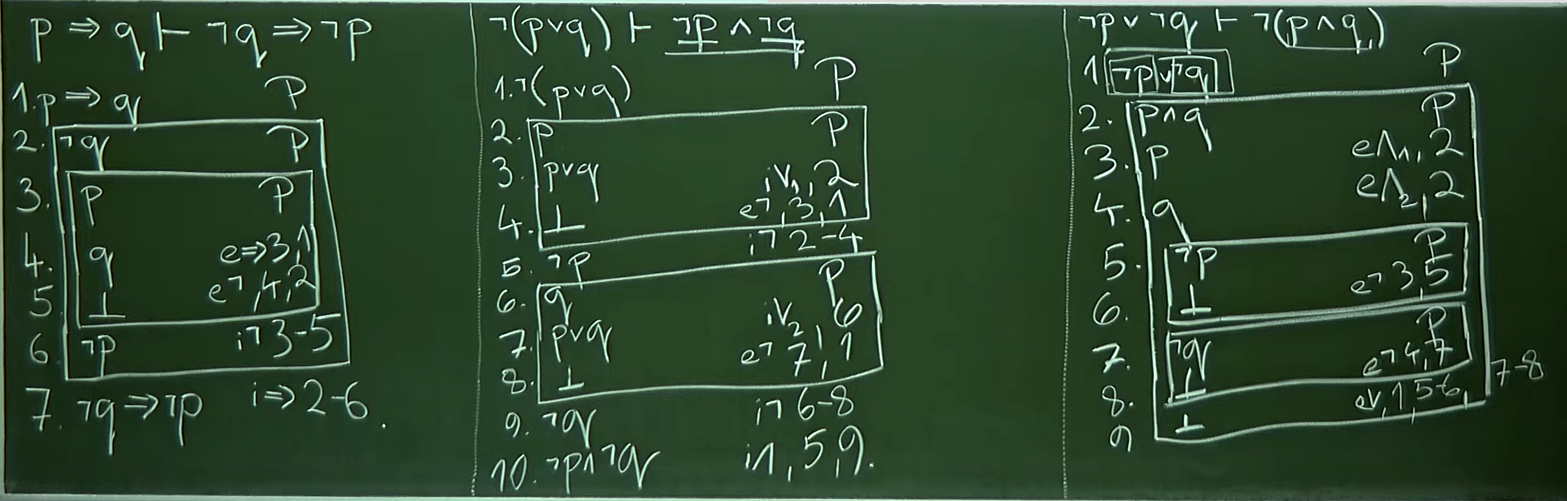 p ⇒ q ⊢ ¬q ⇒ ¬p
1. p ⇒ q P
2. ¬q P
3. p P
4. q e⇒3,1
5 ⊥ e¬,4,2
6 ¬p i¬3-5
7. ¬q ⇒ ¬p i⇒2-6.
¬(p∨q) ⊢ ¬p ∧ ¬q
1. ¬(p∨q) P
2. p P
3. p∨q i∨₁,2
4. ⊥ e¬,3,1
5. ¬p i¬2-4
6. q P
7. p∨q i∨₂ 6
8. ⊥ e¬ 7,1
9. ¬q i¬6-8
10. ¬p∧¬q i∧,5,9.
¬p∨¬q ⊢ ¬(p∧q)
1 ¬p∨¬q P
2. p∧q P
3. p e∧₁,2
4. q e∧₂,2
5. ¬p P
6. ⊥ e¬3,5
7. ¬q P
8. ⊥ e¬4,7
9 ⊥ e∨,1,5-6, 7-8